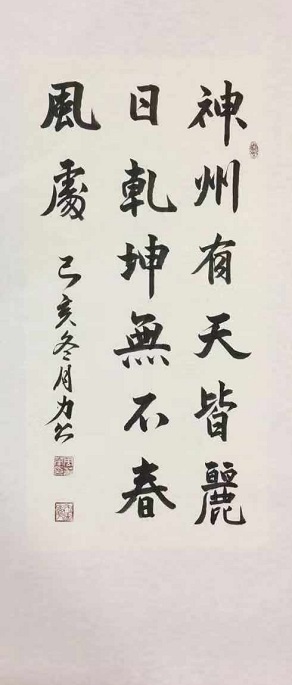 神州有天皆麗
日乾坤無不春
風處
己亥冬月力公